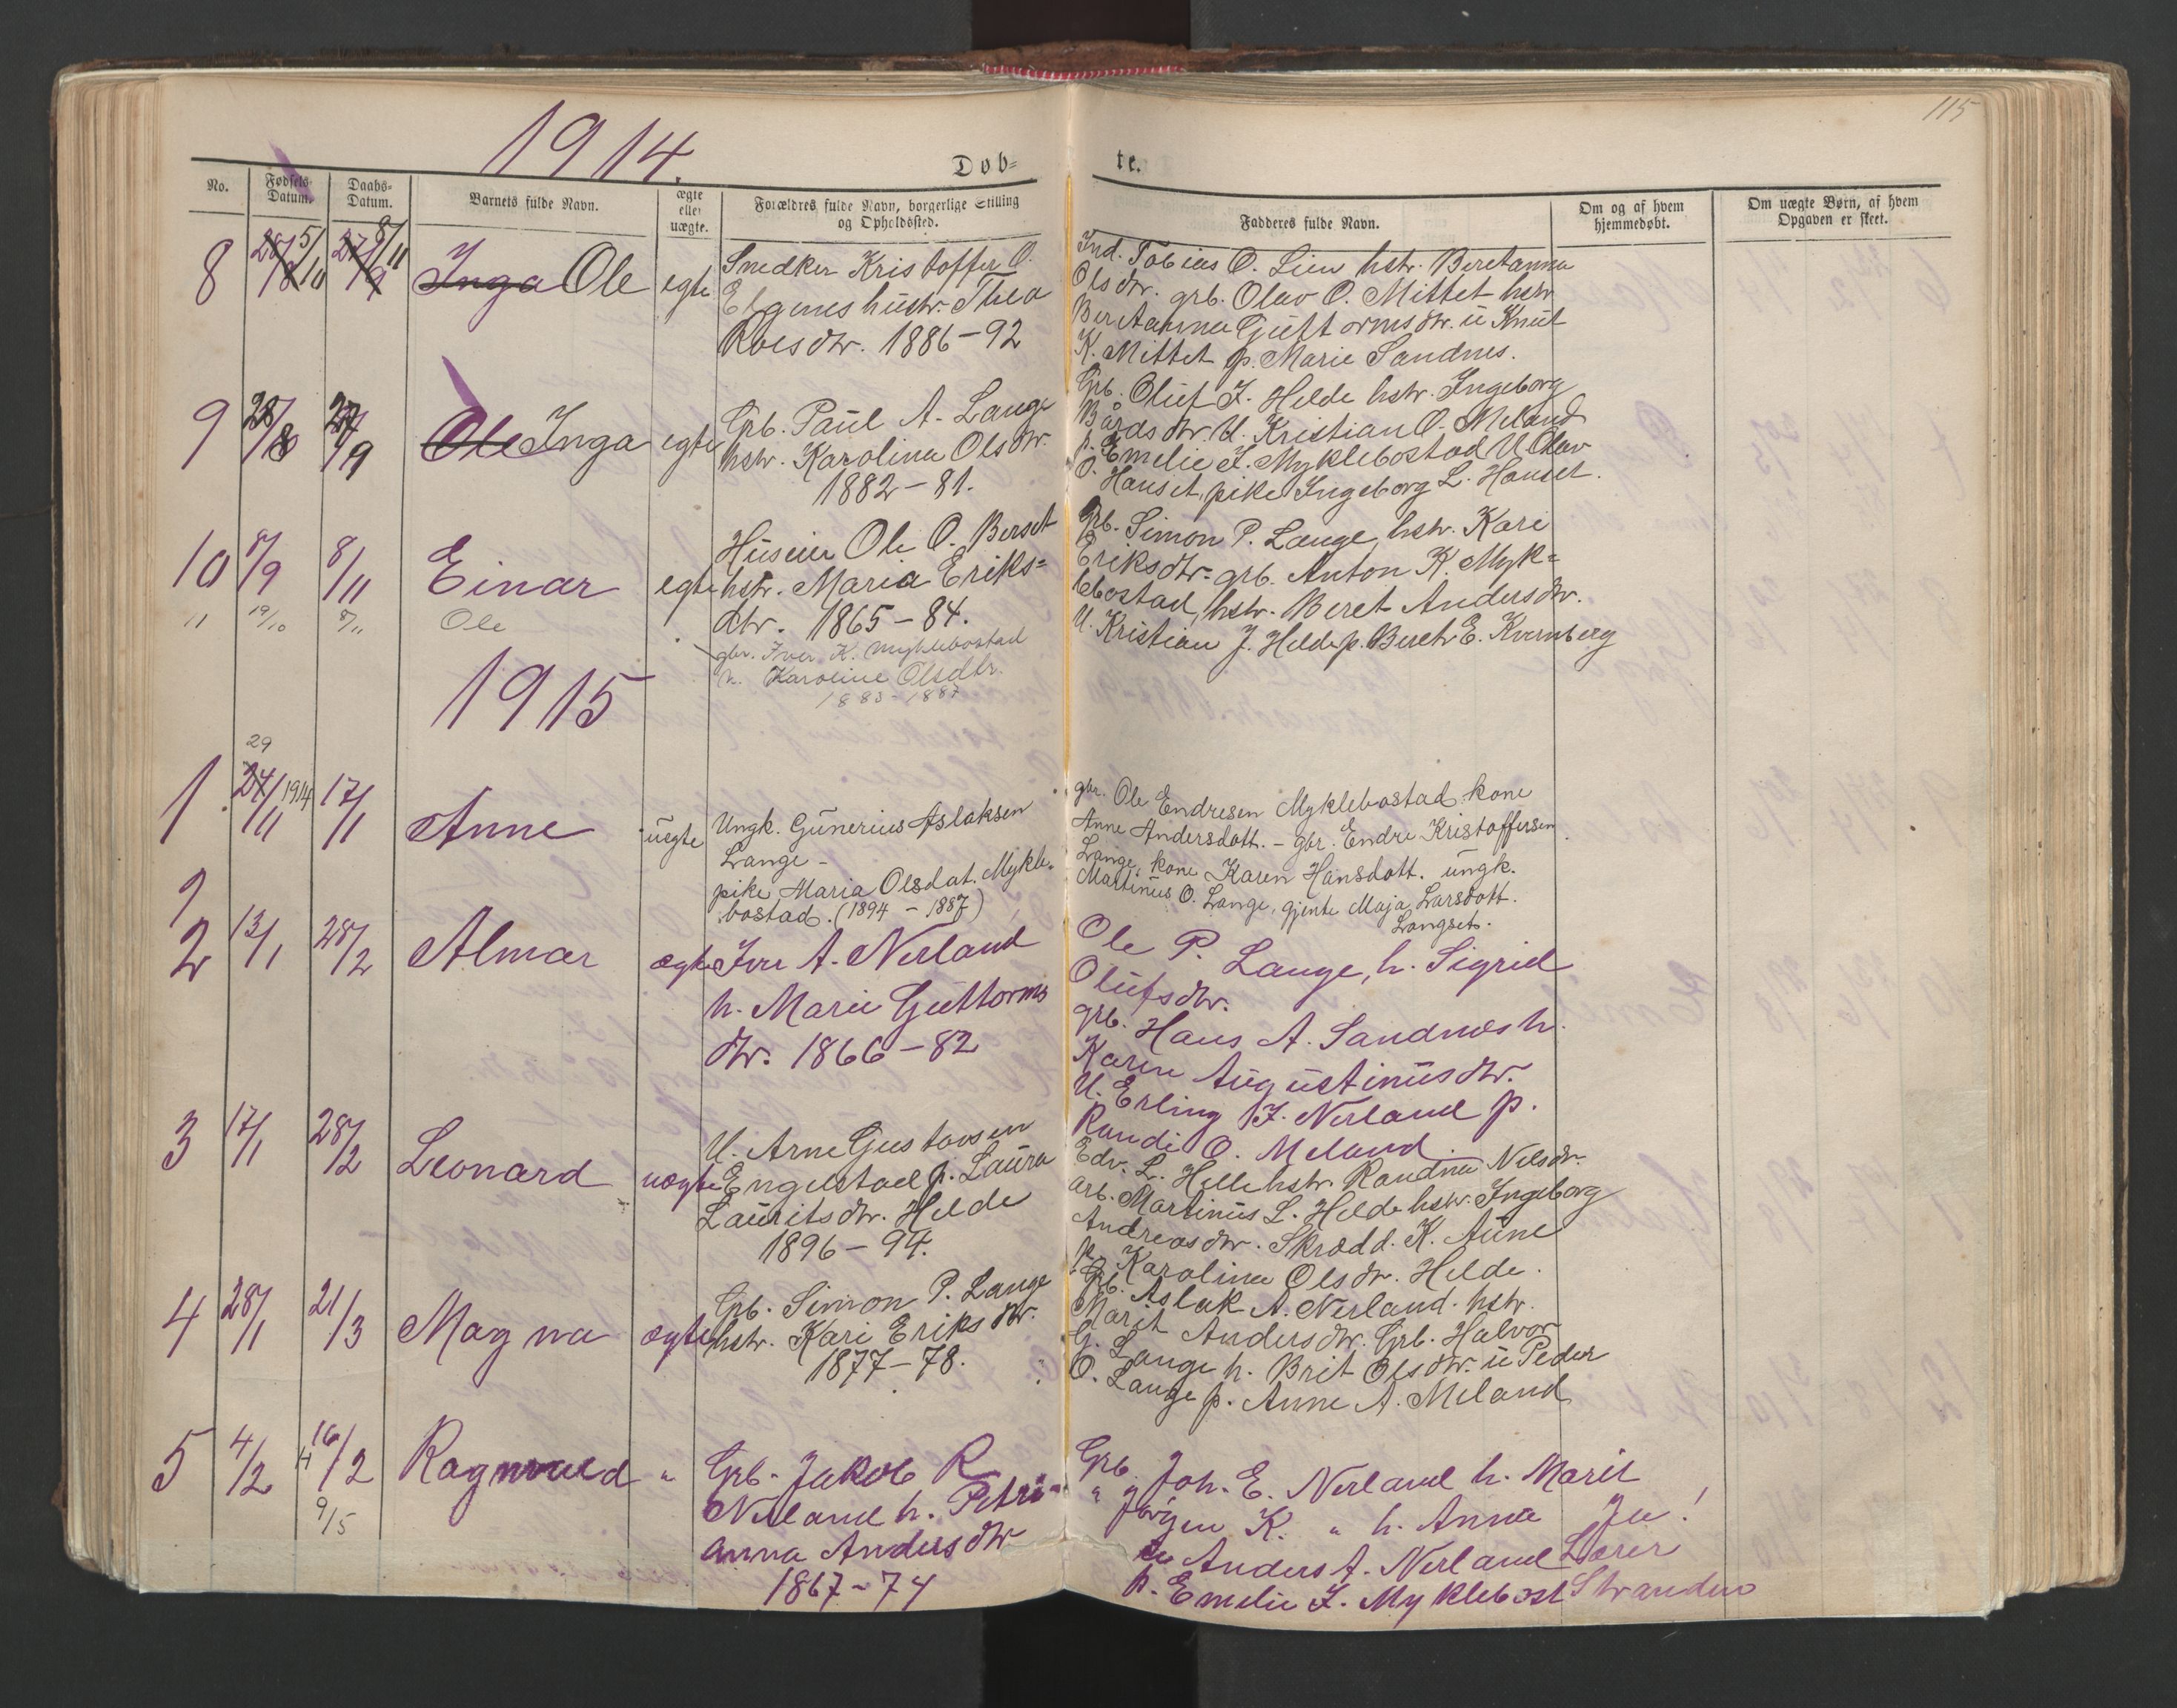 115
1914.
Døb-
te.
No.
Fødsels-
Datum.
Daabs-
Datum.
Barnets fulde Navn.
ægte
eller
uægte.
Forældres fulde Navn, borgerlige Stilling
og Opholdssted.
Fadderes fulde Navn.
Om og af hvem
hjemmedøbt.
Om uægte Børn, af hvem
Opgaven er skeet.
8 28/8 5/10 27/9 8/11 Inga Ole egte
Snedker Kristoffer O.
Elgenes hustr. Thea
Roesdtr. 1886-92
Ind. Tobias O. Lien hstr. Beretanna
Olsdtr. grb. Olav O. Mittet hstr
Beretanna Guttormsdtr. u Knut
K. Mittet p. Marie Sandnes.
9 28/8 27/9 Ole Inga egte
Grb. Paul A. Lange
hstr. Karolina Olsdtr.
1882-81.
Grb. Oluf J. Helde hstr. Ingeborg
Bårdsdtr U. Kristian O. Meland
p. Emelie I. Myklebostad U Olav
O. Hanset, pike Ingeborg L. Hanset.
10 8/9 8/11 Einar egte
Huseier Ole O. Berset
hstr. Maria Eriks=
dtr. 1865-84.
Grb. Simon P. Lange, hstr. Kari
Eriksdtr. grb. Anton K. Myk=
lebostad, hstr. Beret Andersdtr.
U. Kristian J. Helde p. Beret E. Kvernberg
11 19/10 8/11 Ole
gbr. Iver K. Myklebostad
h. Karoline Olsdtr.
1883-1887
1915
1 29 24/11 1914 17/1 Anne uegte
Ungk. Gunerius Aslaksen
Lange -
pike Maria Olsdat. Mykle-
bostad. (1894 - 1887)
gbr. Ole Endresen Myklebostad kone
Anne Andersdatt. - gbr. Endre Kristoffersen
Lange, kone Karen Hansdatt. ungk.
Martinus O. Lange, gjente Maja Larsdatt.
Langset.
2 13/1 28/2 Almar ægte
Iver A. Nerland
h. Marie Guttorms
dtr. 1866-82
Ole P. Lange, h. Sigrid
Olufsdtr.
grb. Hans A. Sandnes h.
Karen Augustinusdtr.
U. Erling I. Nerland p.
Randi O. Meland
3 17/1 28/2 Leonard uægte
U. Arne Gustavsen
Engelstad p. Laura
Lauritsdtr. Helde
1896-94.
Edv. L. Helle hstr. Randine Nilsdtr.
arb. Martinus L. Helde hstr. Ingeborg
Andreasdtr. Skrædd. K. Aune
p. Karolina Olsdtr. Helde.
4 28/1 21/3 Magna ægte
Grb. Simon P. Lange
hstr. Kari Eriksdtr.
1877-78.
Grb. Aslak A. Nerland. hstr.
Marit Andersdtr. Grb. Halvor
G. Lange h. Brit Olsdtr. u Peder
O. Lange p. Anne A. Meland
5 4/2 H 16/2 Ragnvald "
9/5
Grb. Jakob R
Nerland h. Petri-
anna Andersdtr
1867-74
Grb. Joh. E. Nerland h. Marit
" Jörgen K. " h. Anna Ja!
Anders A. Nerland Lærer
p. Emelie I. Myklebost Stranden